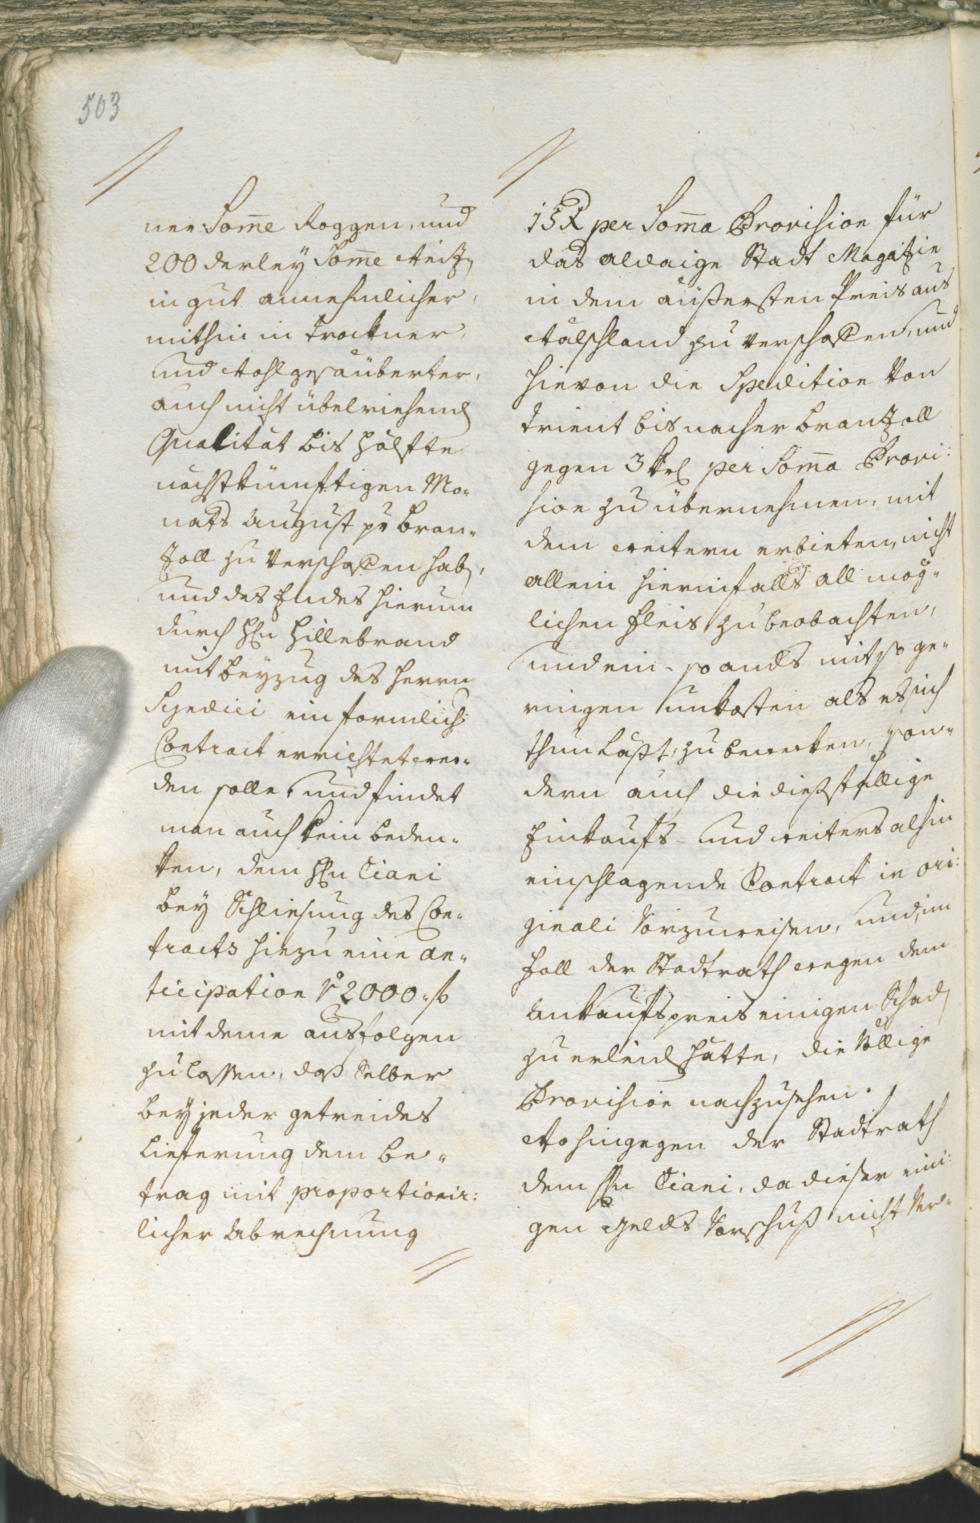 503
ner Som̄e Roggen, und
200 derley Som̄e Weitz
in gut annehmlicher,
mithin in trockner
und wohlgesäuberter,
auch nicht übelriehend
Qualität bis Hälfte
nächstkünftigen Mo-
nats August pr Bran-
zoll zu verschaffen hab,
und des Endes hierum
durch Hln Hillebrand
mit beyzug des Herrn
Syndici ein formlich
Contract errichtet wer-
den solle, und findet
man auch kein beden-
ken, dem Hln Ciani
bey Schliesung des Con-
tracts hiezu eine An-
ticipation 2000 f
mit deme ausfolgen
zu lassen, daß Selber
bey jeder getreides
Lieferung dem be-
trag mit proportionir:
licher Abrechnung
15 X per Som̄a Provision für
das aldaige Stadt Magazin
in dem äußersten Preis aus
Wälschland zu verschaffen, und
hievon die Spedition von
Trient bis nacher Branzoll
gegen 3 per Som̄a Provi:
sion zu übernehmen, mit
dem weitern erbieten, nicht
allein hierinfalls all mög-
lichen Fleis zu beobachten,
und ein- so ands mit so ge-
ringen unkosten als es sich
thun laßt, zu bewerken, son-
dern auch die dießfällige
Einkaufs- und weiters alhin
einschlagende Contract in ori:
ginali vorzuweisen, und im
Fall der Stadtrath wegen dem
Ankaufspreis einigen Schad
zu erleid hätte, die völlige
Provision nachzusehen.
Wohingegen der Stadtrath
dem Hln Ciani, da dieser eini:
gen Gelds Vorschuß nicht ver-